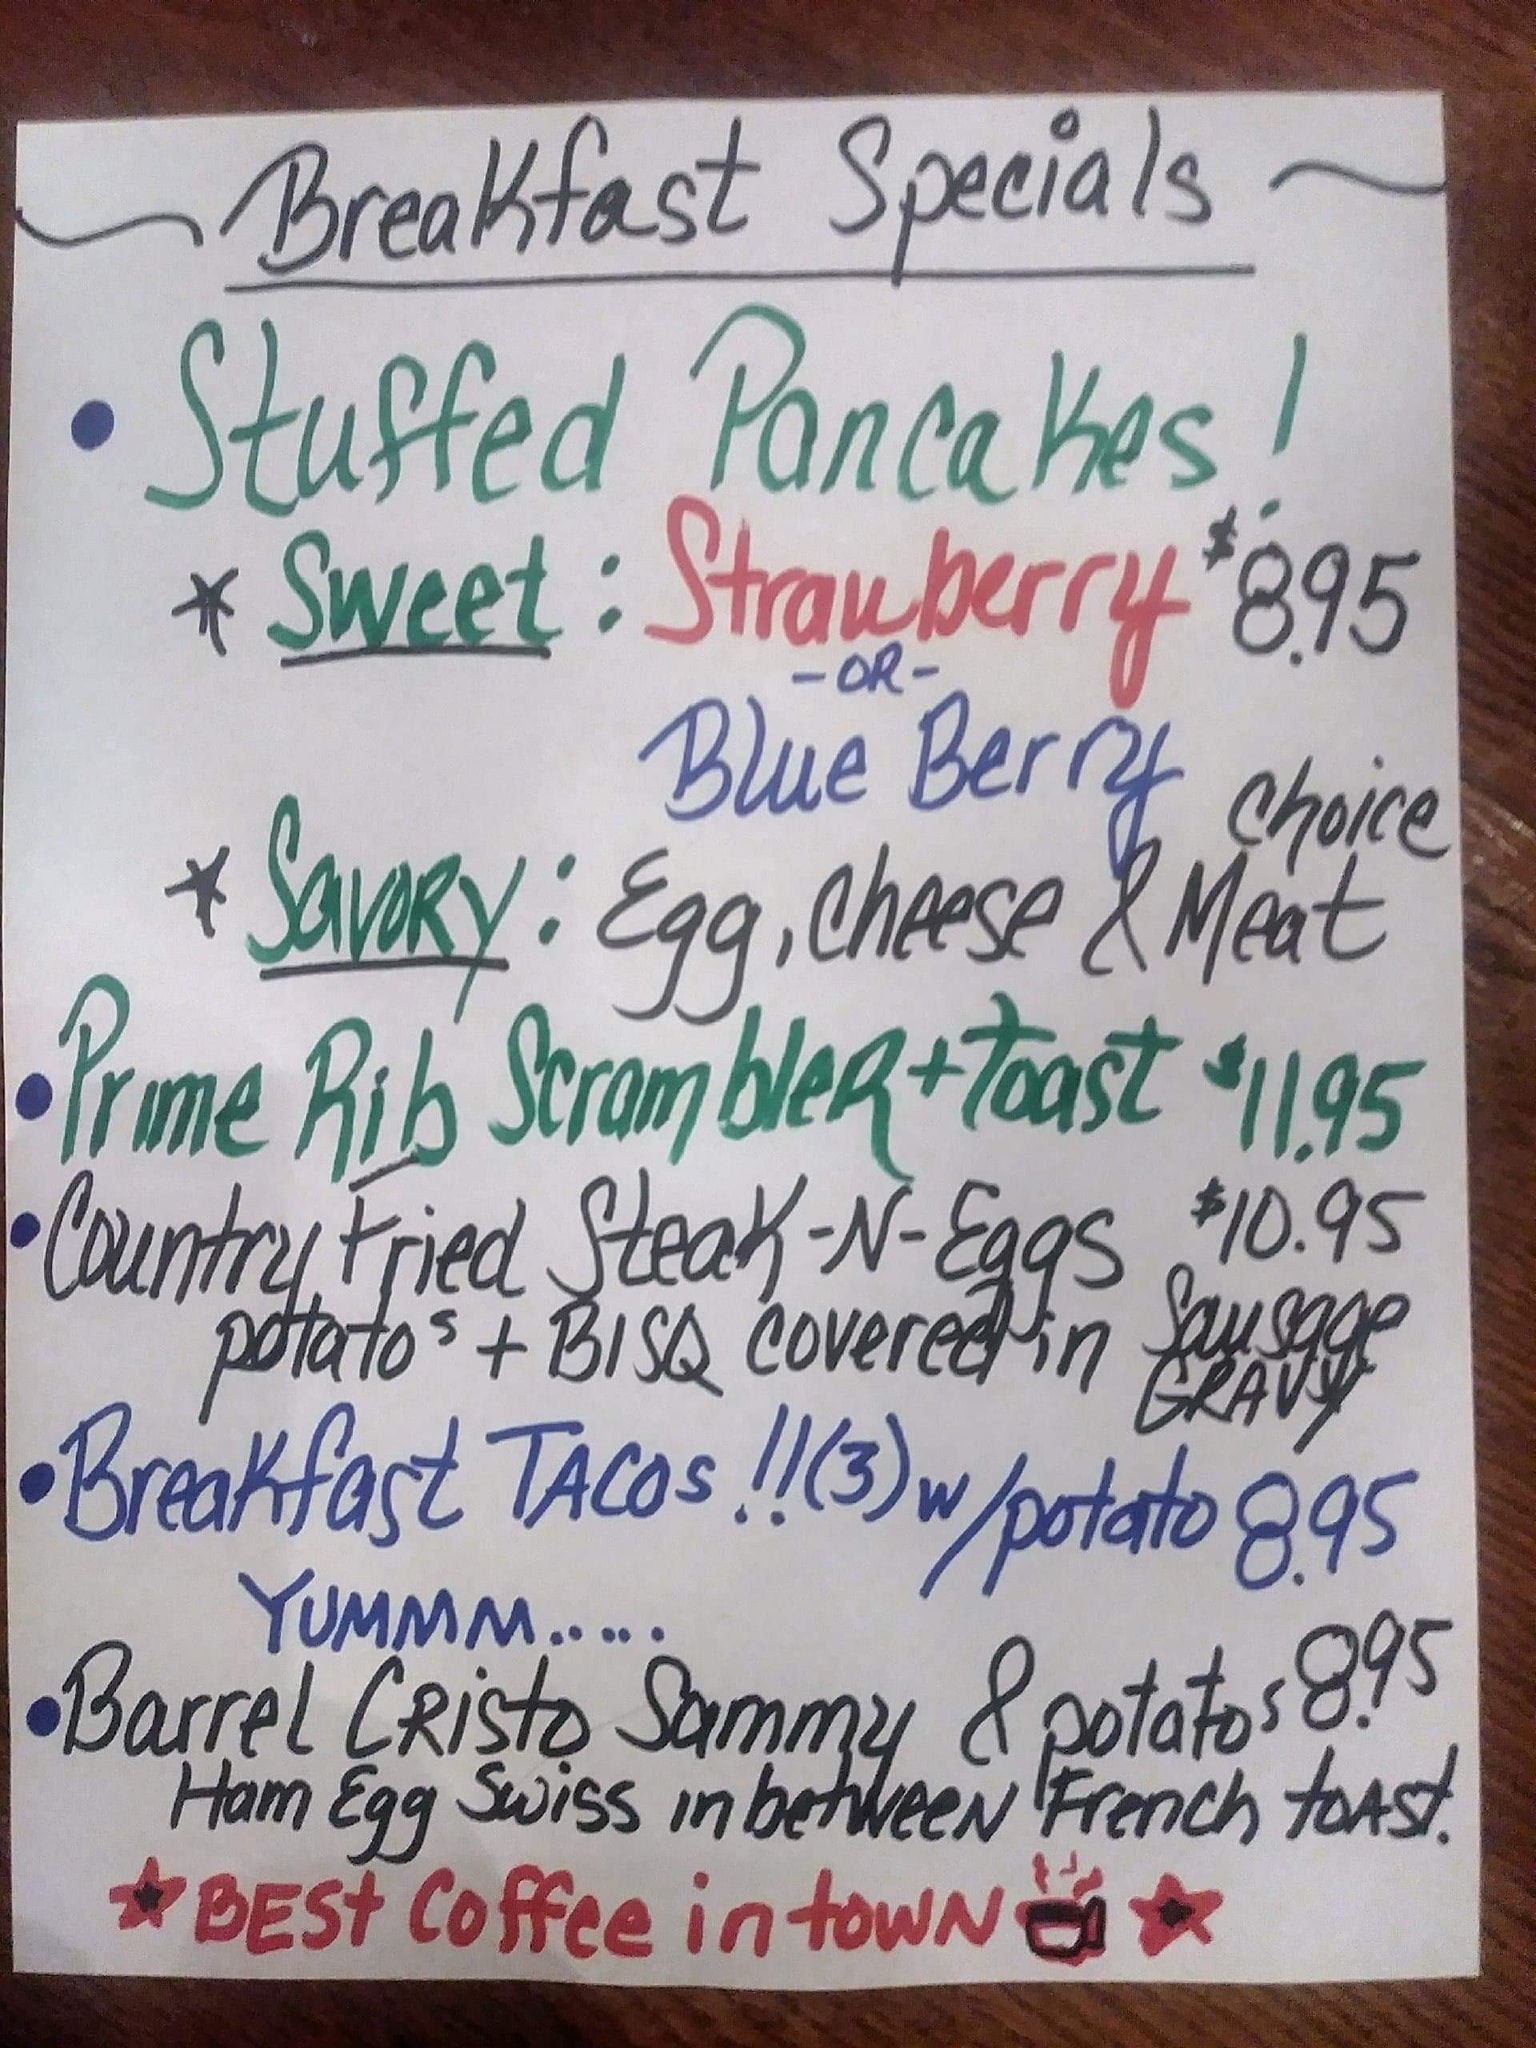 Breakfast Specials
• Stuffed Pancakes!
* Sweet: Strawberry $8.95
-OR-
Blue Berry
* Savory: Egg, Cheese & Choice Meat
• Prime Rib Scrambler + Toast $11.95
• Country Fried Steak-N-Eggs $10.95
potatos + BISQ covered in Sausage GRAVY
• Breakfast TACOS!!(3) w/potato 8.95
YUMMM.....
• Barrel CRisto Sammy & potatos 8.95
Ham Egg Swiss in between French toAst.
BEST Coffee in towN